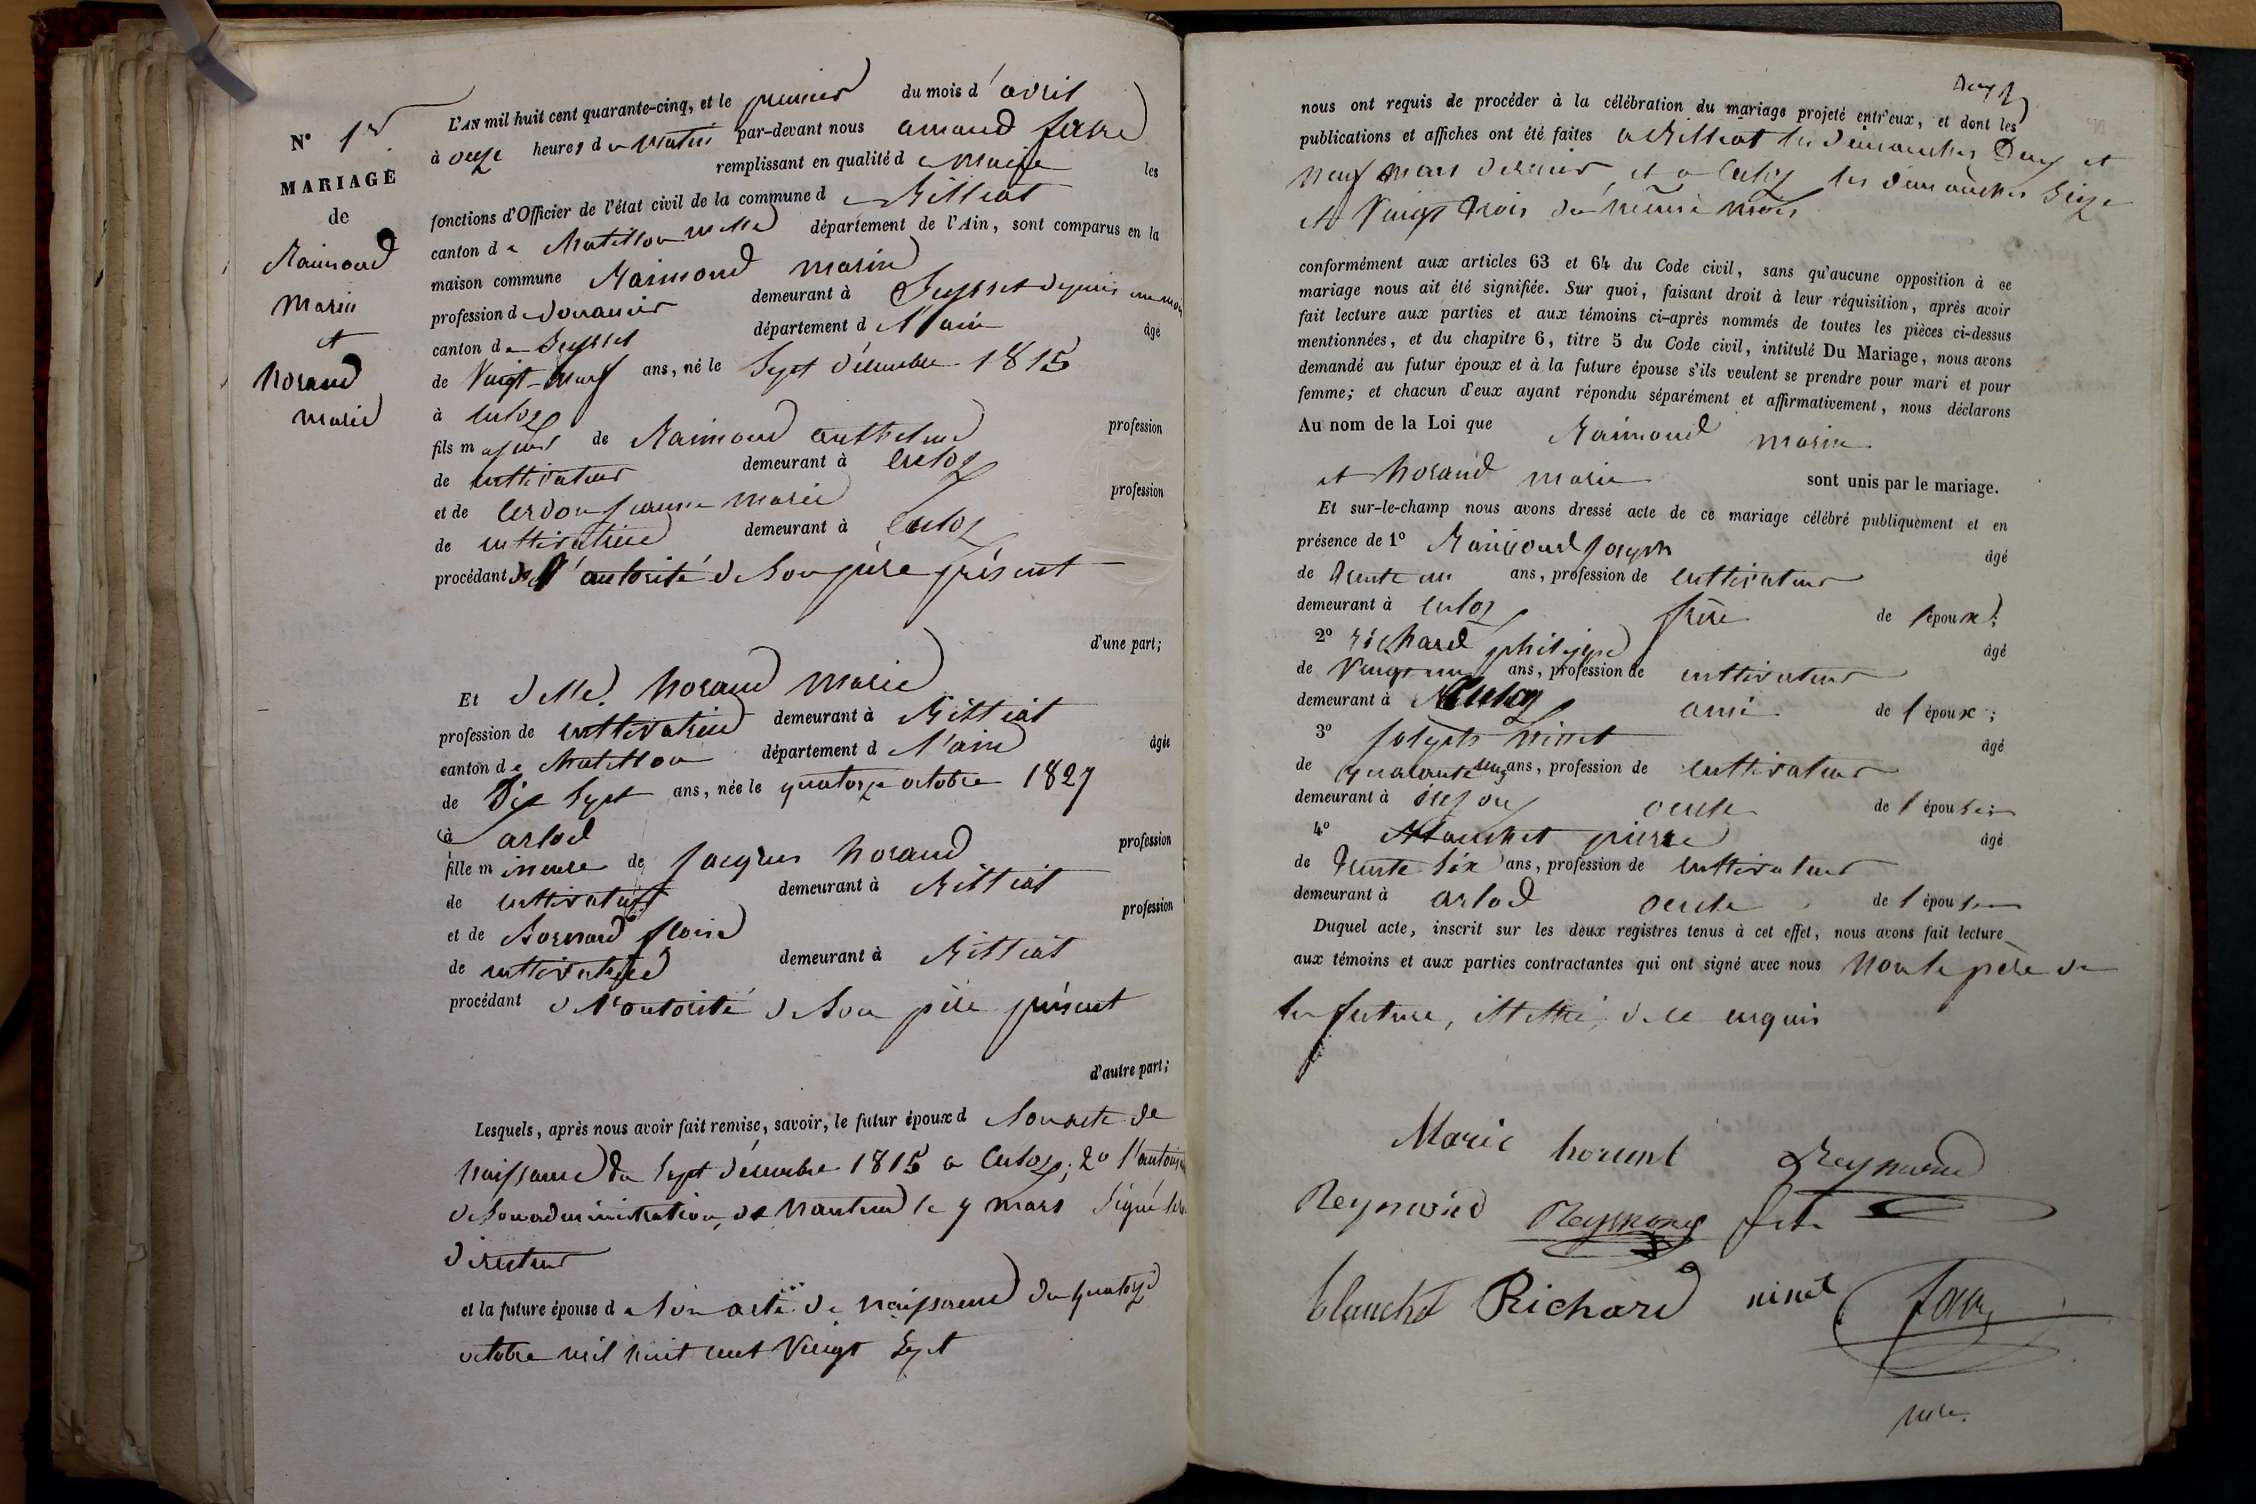 N° 1er
MARIAGE
de
Raimond
Marin
et
Norand
Marie
L'AN mil huit cent quarante-cinq, et le premier du mois d'avril
à onze heures du matin par-devant nous amand favre
remplissant en qualité de Maire les
fonctions d'Officier de l'état civil de la commune de Billiat
canton de Chatillon mlle département de l'Ain, sont comparus en la
maison commune Raimond marin
profession de Douanier demeurant à Seyssel depuis un mois
canton de Seyssel département de l'ain âgé
de Vingt-neuf ans, né le Sept décembre 1815
à Culoz
fils majeur de Raimond anthelme profession
de cultivateur demeurant à Culoz
et de Cerdon jeanne marie profession
de cultivatrice demeurant à Culoz
procédant de l'autorité de Son père présent
d'une part;
Et delle. Norand Marie
profession de cultivatrice demeurant à Billiat
canton de Chatillon département de l'ain âgée
de Dix Sept ans, née le quatorze octobre 1827
à arlod
fille mineure de Jacques Norand profession
de cultivateur demeurant à Billiat
et de Bornard profession
de cultivatrice demeurant à Billiat
procédant de l'autorité de Son père présent
d'autre part;
Lesquels, après nous avoir fait remise, savoir, le futur époux de Son acte de
naissance du Sept décembre 1815 a Culoz; 2° l'autorisation
de Son administration, de Nantua le 7 mars Signé
directeur
et la future épouse de Son acte de naissance du quatorze
octobre mil huit cent Vingt Sept
nous ont requis de procéder à la célébration du mariage projeté entr'eux, et dont les
publications et affiches ont été faites a Billiat les dimanches Deux et
neuf mars dernier, et a Culoz les dimanches Seize
et Vingt trois du même mois
conformément aux articles 63 et 64 du Code civil, sans qu'aucune opposition à ce
mariage nous ait été signifiée. Sur quoi, faisant droit à leur réquisition, après avoir
fait lecture aux parties et aux témoins ci-après nommés de toutes les pièces ci-dessus
mentionnées, et du chapitre 6, titre 5 du Code civil, intitulé Du Mariage, nous avons
demandé au futur époux et à la future épouse s'ils veulent se prendre pour mari et pour
femme; et chacun d'eux ayant répondu séparément et affirmativement, nous déclarons
Au nom de la Loi que Raimond marin
et Norand marie sont unis par le mariage.
Et sur-le-champ nous avons dressé acte de ce mariage célébré publiquement et en
présence de 1° Raimond Joseph âgé
de trente un ans, profession de cultivateur
demeurant à Culoz frère de l'époux;
2° richard philippe âgé
de Vingt ans, profession de cultivateur
demeurant à Culoz ami de l'époux;
3° Joseph ninet âgé
de quarante cinq ans, profession de cultivateur
demeurant à injoux oncle de l'épouse;
4° Blanchet pierre âgé
de trente Six ans, profession de cultivateur
demeurant à arlod oncle de l'épouse
Duquel acte, inscrit sur les deux registres tenus à cet effet, nous avons fait lecture
aux témoins et aux parties contractantes qui ont signé avec nous Non le père de
la future, illettré, de ce enquis
Marie Norand Reymond
Reymond Reymond
blanchet Richard ninet favre